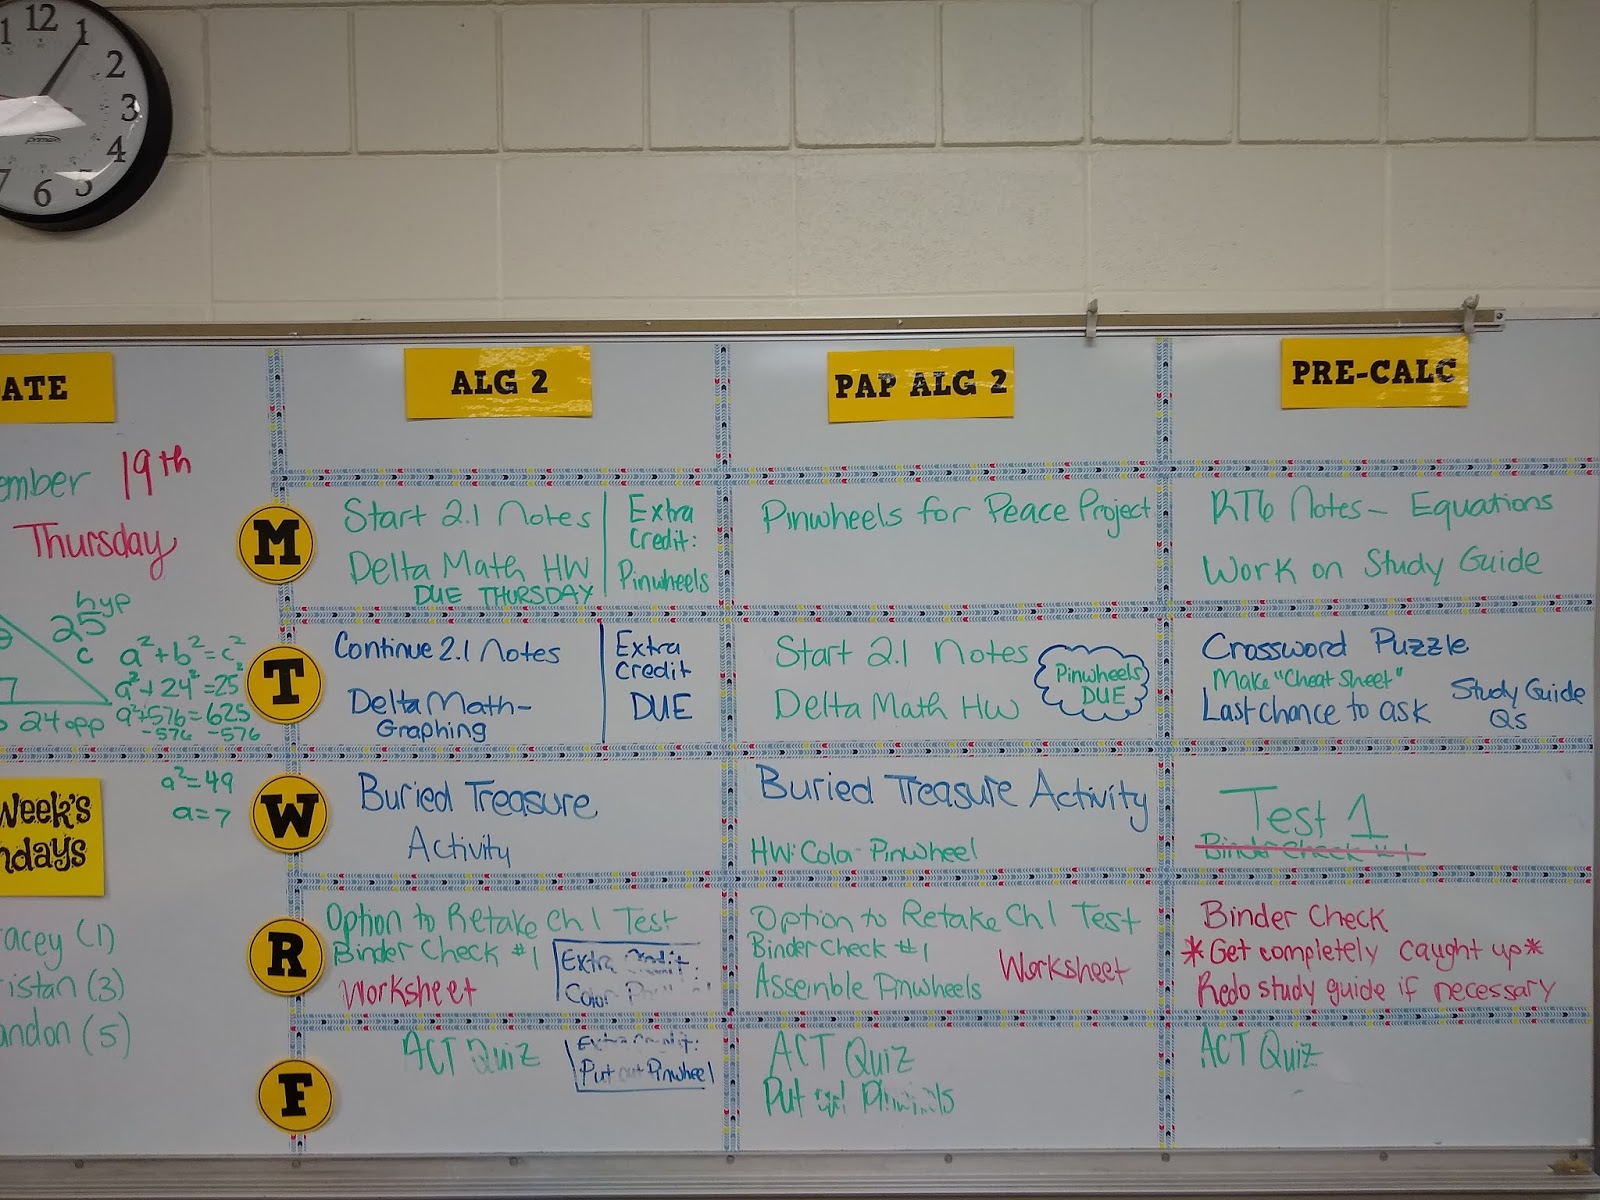 12
1
1
2
3
4
5
6
7
ATE
ember 19th
Thursday
hyp
25
c
24 opp
a²+b²=c²
a²+24²=25²
a²+576=625
-576 -576
a²=49
a=7
Week's
hdays
acey (1)
istan (3)
andon (5)
ALG 2
PAP ALG 2
PRE-CALC
M
Start 2.1 Notes
Delta Math HW
DUE THURSDAY
Extra
Credit:
Pinwheels
Pinwheels for Peace Project
RT6 Notes- Equations
Work on Study Guide
T
Continue 2.1 Notes
Delta Math-
Graphing
Extra
Credit
DUE
Start 2.1 Notes
Delta Math HW
Pinwheels
DUE
Crossword Puzzle
Make "Cheat Sheet"
Last chance to ask
Study Guide
Qs
W
Buried Treasure
Activity
Buried Treasure Activity
HW: Color Pinwheel
Test 1
Binder Check #1
R
Option to Retake Ch 1 Test
Binder Check #1
Worksheet
Extra Credit:
Color
Option to Retake Ch 1 Test
Binder Check #1
Assemble Pinwheels
Worksheet
Binder Check
*Get completely caught up*
Redo study guide if necessary
F
ACT Quiz
Extra Credit:
Put out Pinwheel
ACT Quiz
Put
ACT Quiz